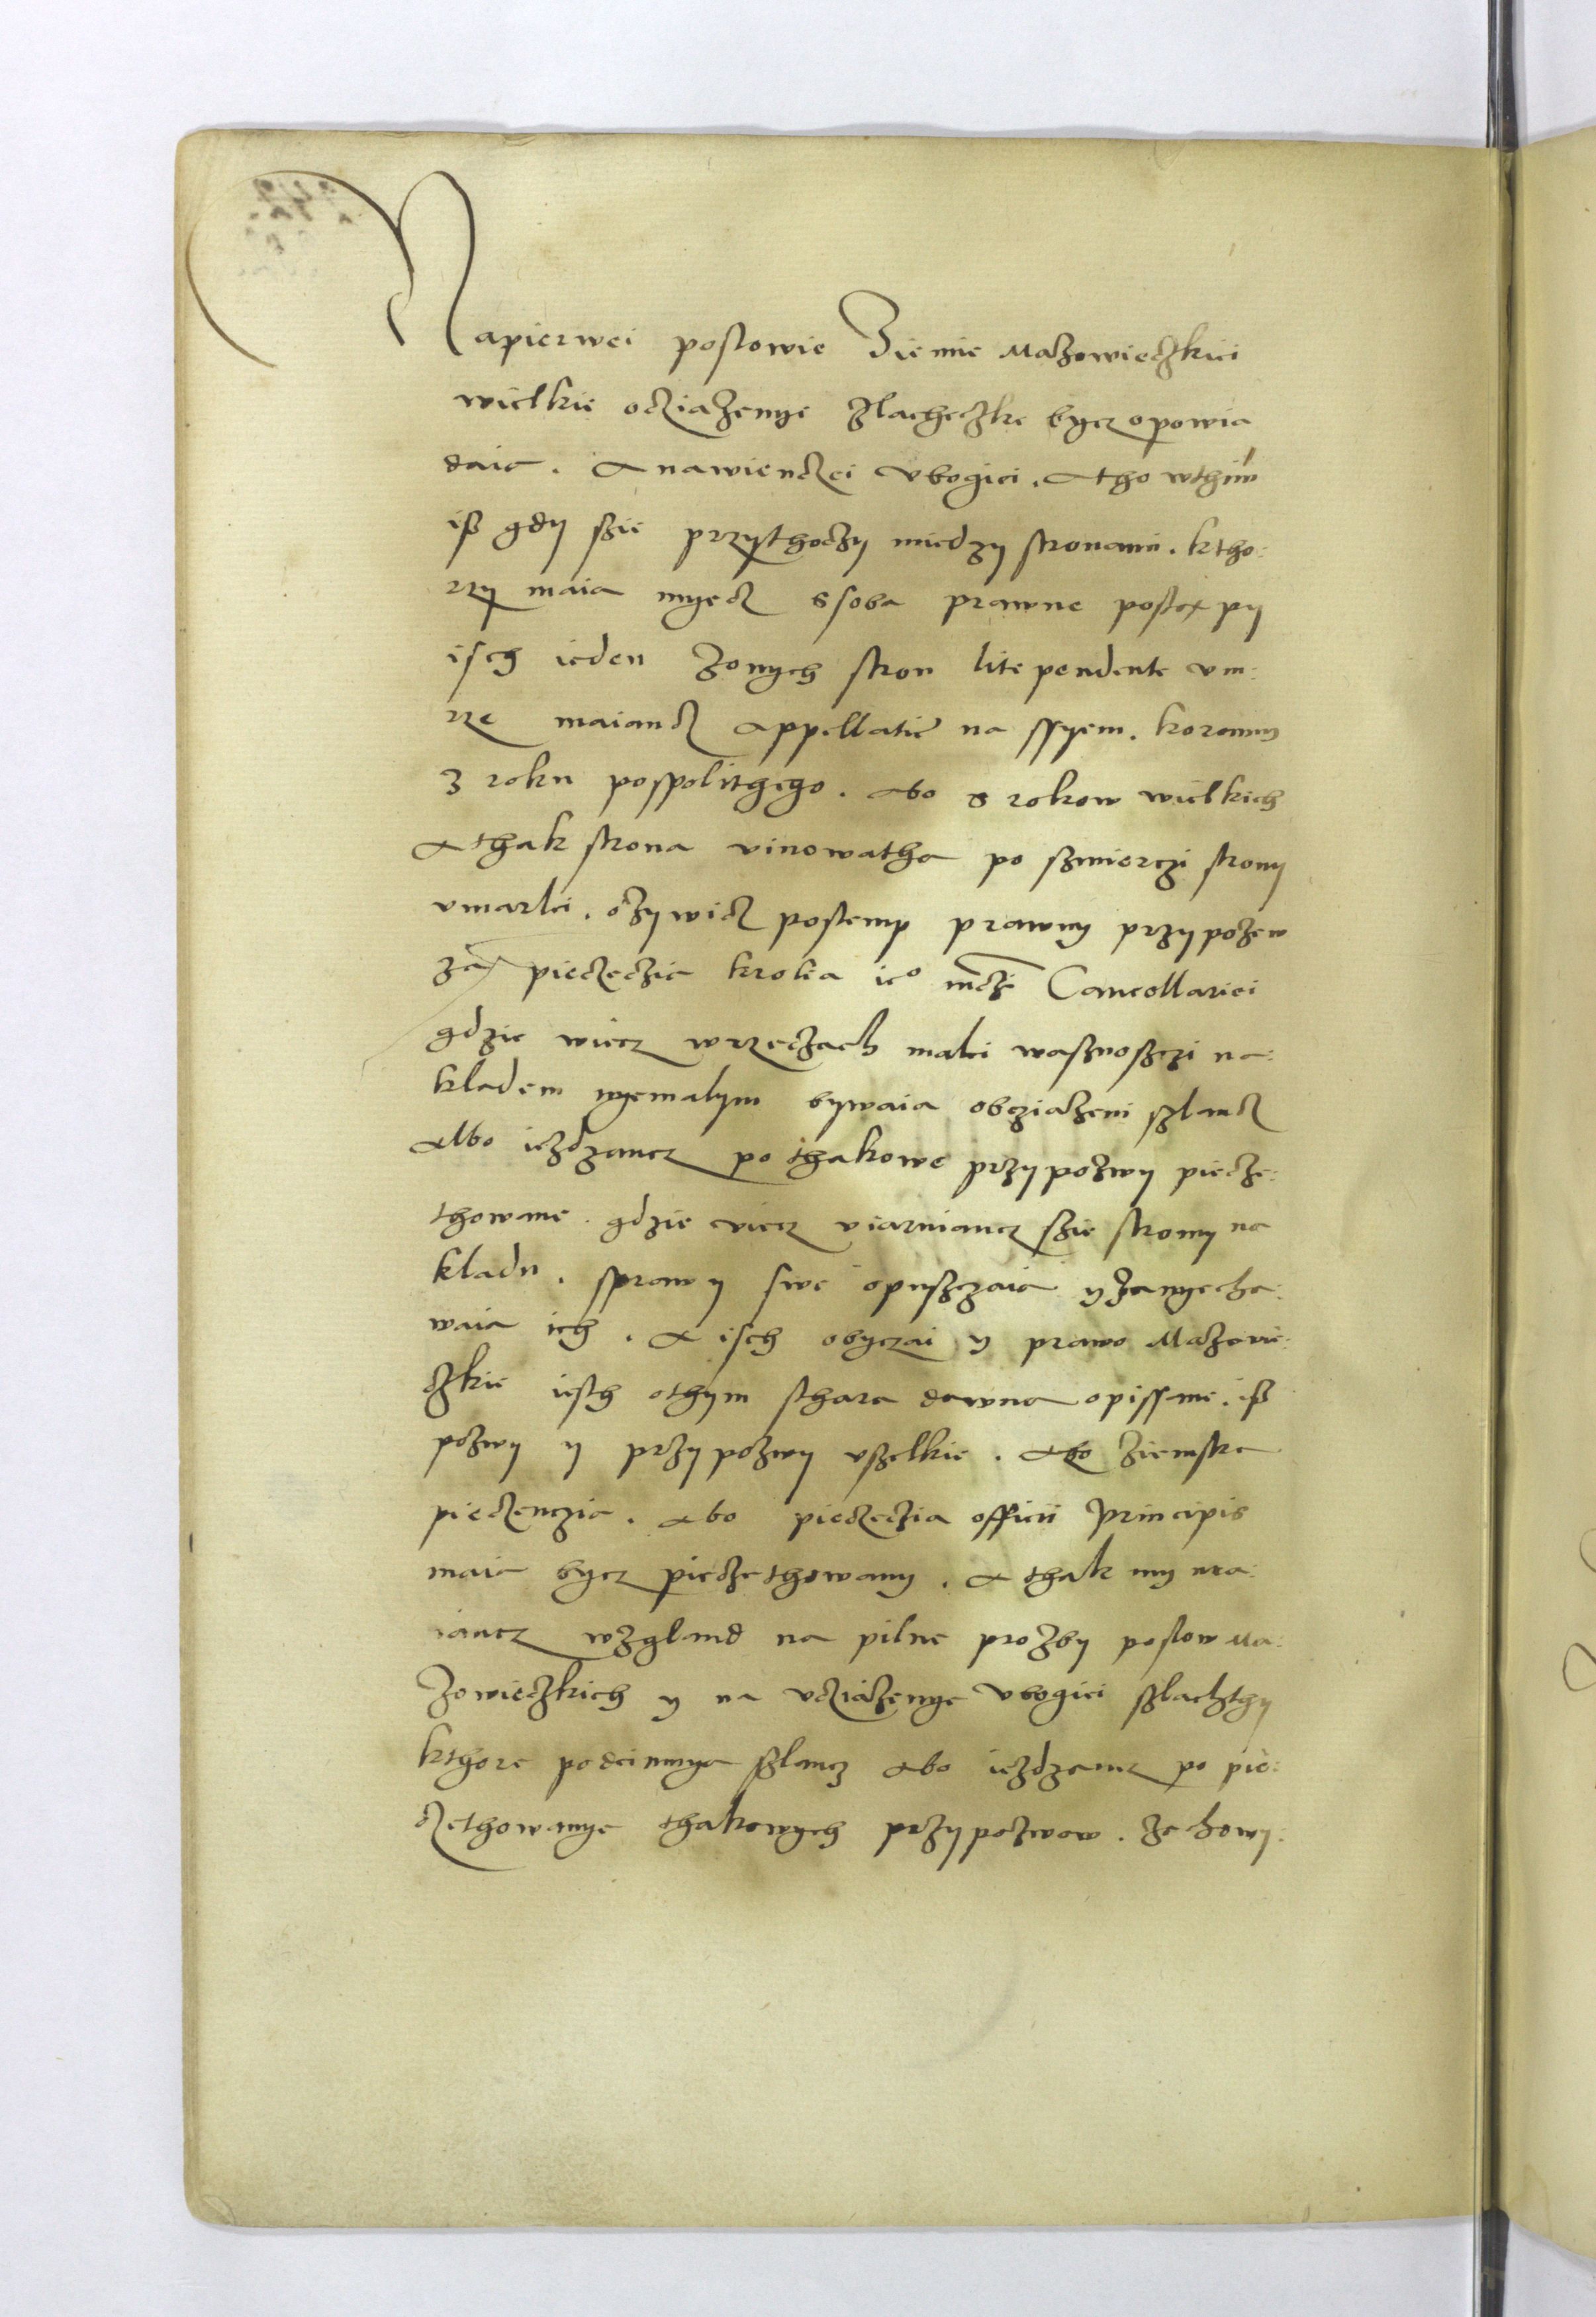 Napierwei poslowie Ziemie Mazowieczkiei
wielkie ocziazenye zlacheczke bycz opowia
daia. A nawienczei vbogiei. A tho wthim
iss gdy szie przythoczy miedzy stronami. ktho:
rzy maia myecz s soba prawne postexpy
isch ieden zonych stron lite pendente vm:
rze maiancz appellatie na ssyem. koronny
z roku pospolithego. Abo s rokow wielkich
A thak strona vinowatha po szmierczi strony
vmarlei. ozywicz postemp prawny przypozew
za pieczeczia krolia ieo mczi Cancellariei
gdzie wiecz wrzeczach malei wasznosczi na:
kladem nyemalym bywaia obcziazeni szlancz
Albo iezdzancz po thakowe przypozwy piecze:
thowane. gdzie wiecz viarniancz szie strony na
kladu. sprawy swe opuszczaia y zanyecha:
waia ich. A isch obyczai y prawo Mazowie:
czkie iesth othym sthara dawna opissane. iss
pozwy y przypozwy vszelkie. Abo ziemska
pieczenczia. Abo pieczeczia officii Principis
maia bycz pieczethowany. A thak my ma:
iancz wzgland na pilne prozby poslow Ma:
zowieczkich y na vcziazenye vbogiei szlachthy
kthore podeimuya szlancz Abo iezdzancz po pie:
czethowanye thakowych przypozwow. ze zowy: